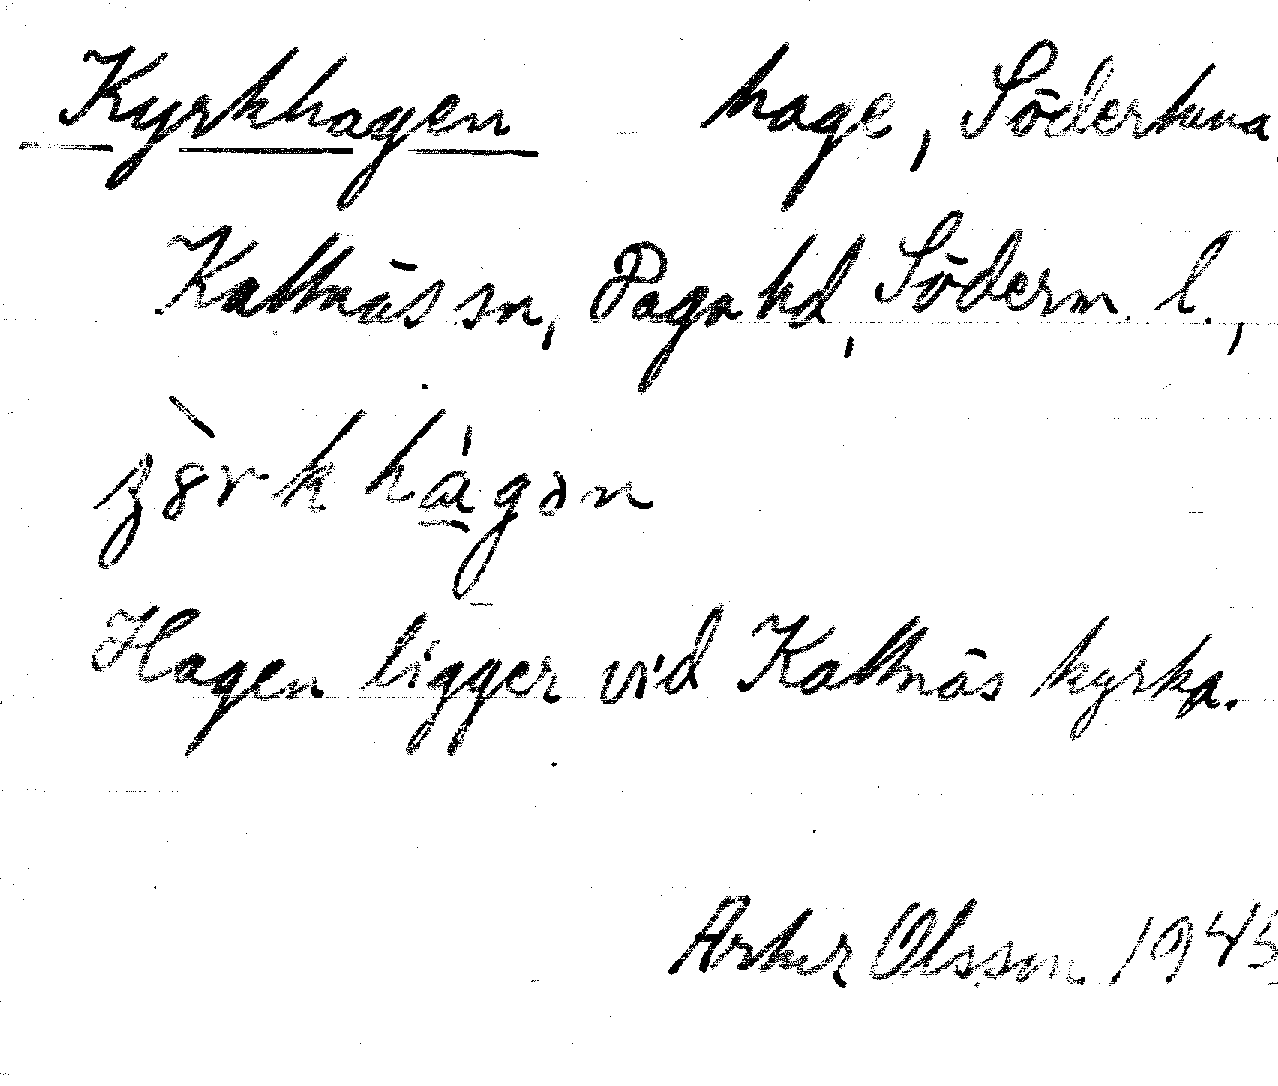 Kyrkhagen hage, Södertuna
Kattnäs sn, Daga hd, Söderm. l.,
Hagen ligger vid Kattnäs kyrka.
Artur Olsson 1945